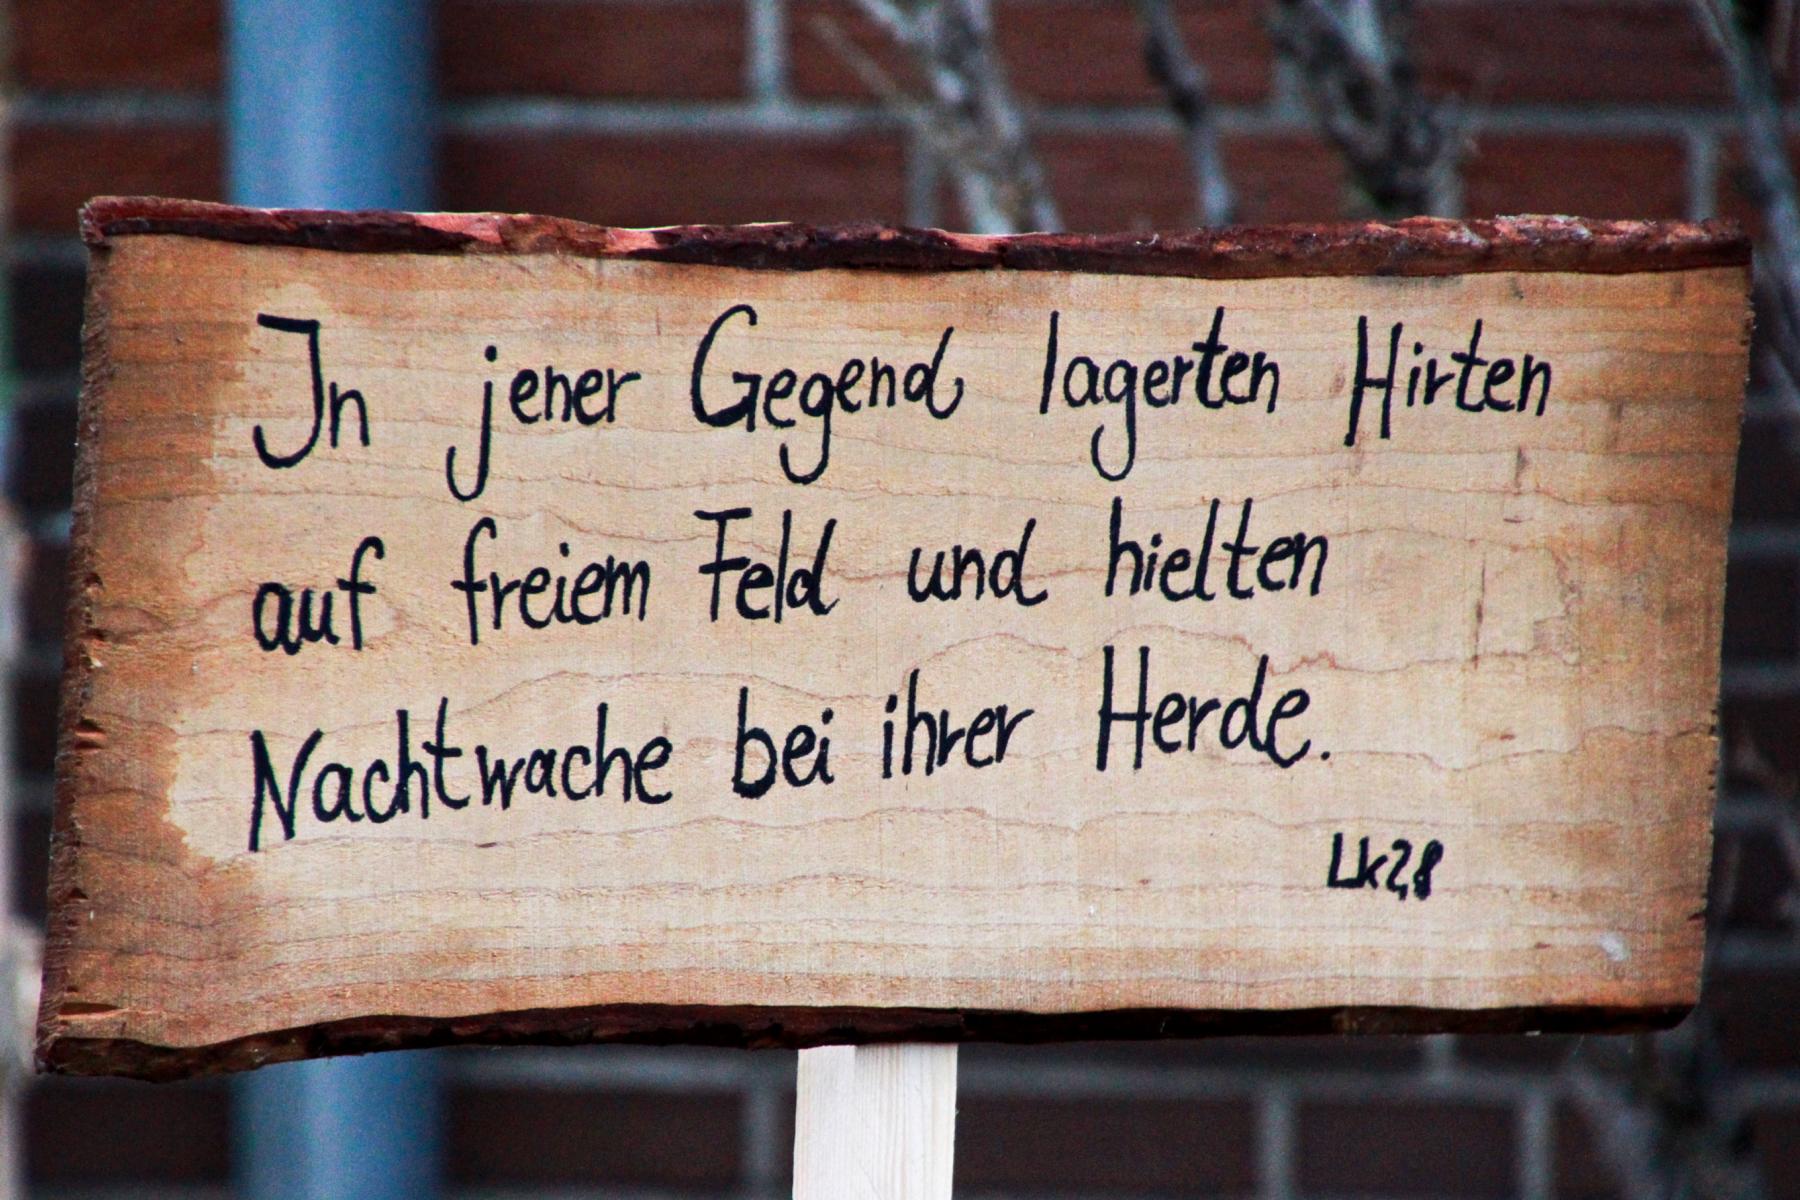 In jener Gegend lagerten Hirten
auf freiem Feld und hielten
Nachtwache bei ihrer Herde.
Lk 2,8